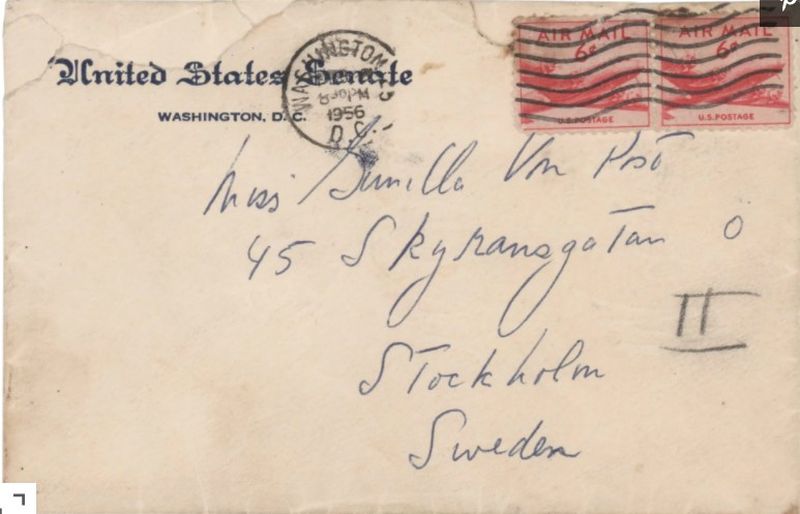 United States Senate
WASHINGTON, D. C.
WASHINGTON
PM
1956
D.C.
AIR MAIL
6¢
U.S. POSTAGE
AIR MAIL
6¢
U.S. POSTAGE
Miss Gunilla Von Post
45 Skyransgatan O
II
Stockholm
Sweden